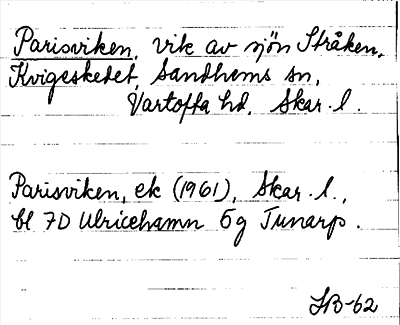 Parisviken, vik av sjön Stråken,
Kvigeskedet, Sandhems sn,
Vartofta hd, Skar. l.
Parisviken, ek (1961), Skar. l.,
bl 7D Ulricehamn 5g Tunarp.
SB-62